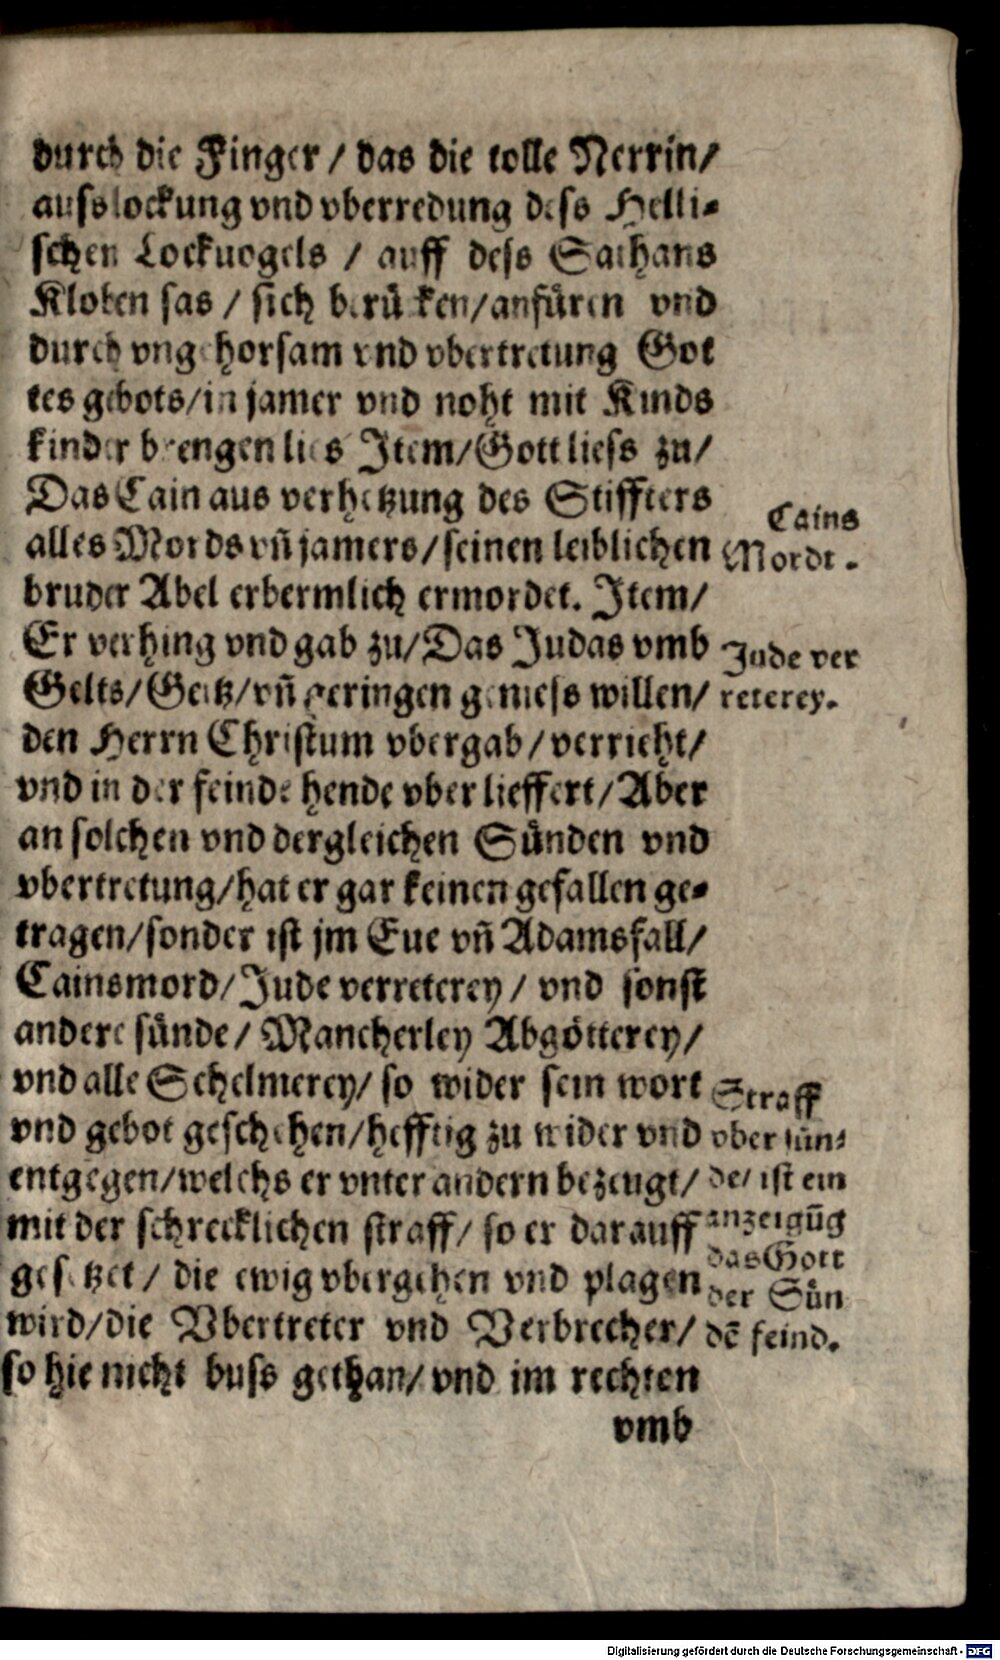 durch die Finger / das die tolle Nerrin/
aufslockung vnd vberredung dess Helli-
schen Lockuogels / auff dess Sathans
Kloben sas / sich berücken/anfüren vnd
durch vngehorsam vnd vbertretung Got
tes gebots/in jamer vnd noht mit Kinds
kinder brengen lies Item/Gott liess zu/
Das Cain aus verhetzung des Stiffters
alles Mords vñ jamers/seinen leiblichen
bruder Abel erbermlich ermordet. Item/
Er verhing vnd gab zu/Das Judas vmb
Gelts/Geitz/vñ geringen geniess willen/
den Herrn Christum vbergab/verrieht/
vnd in der feinde hende vber lieffert/Aber
an solchen vnd dergleichen Sünden vnd
vbertretung/hat er gar keinen gefallen ge-
tragen/sonder ist jm Eue vñ Adamsfall/
Cainsmord/Jude verreterey/ vnd sonst
andere sünde/ Mancherley Abgötterey/
vnd alle Schelmerey/ so wider sein wort
vnd gebot geschehen/hefftig zu wider vnd
entgegen/welchs er vnter andern bezeugt/
mit der schrecklichen straff/ so er darauff
gesetzet/ die ewig vbergehen vnd plagen
wird/die Vbertreter vnd Verbrecher/
so hie nicht buss gethan/ vnd im rechten
vmb
Cains
Mordt.
Jude ver
reterey.
Straff
vber sün-
de/ ist ein
anzeigũg
das Gott
der Sün
dẽ feind.
Digitalisierung gefördert durch die Deutsche Forschungsgemeinschaft - DFG